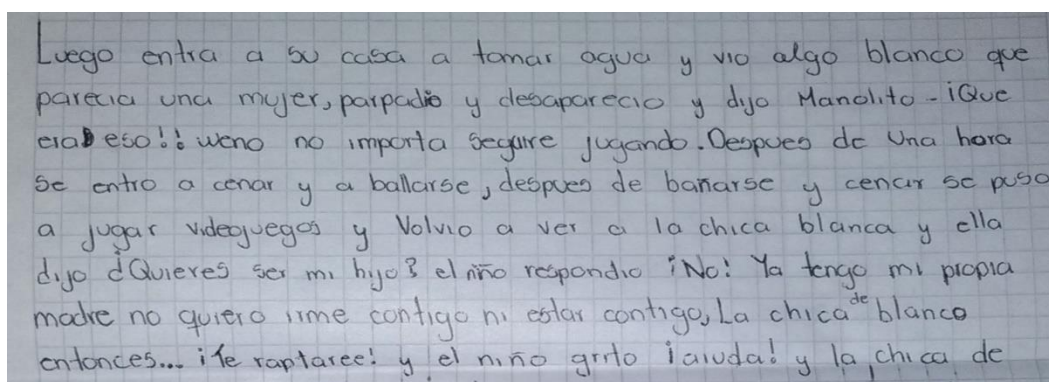 Luego entra a su casa a tomar agua y vio algo blanco que
parecia una mujer, parpadio y desaparecio y dijo Manolito - ¡Que
era eso!! weno no importa seguire jugando. Despues de una hora
se entro a cenar y a bañarse, despues de bañarse y cenar se puso
a jugar videojuegos y Volvio a ver a la chica blanca y ella
dijo ¿Quieres ser mi hijo? el niño respondio ¡No! Ya tengo mi propia
madre no quiero irme contigo ni estar contigo, La chica de blanco
entonces... ¡Te raptaree! y el niño grito ¡aiuda! y la chica de